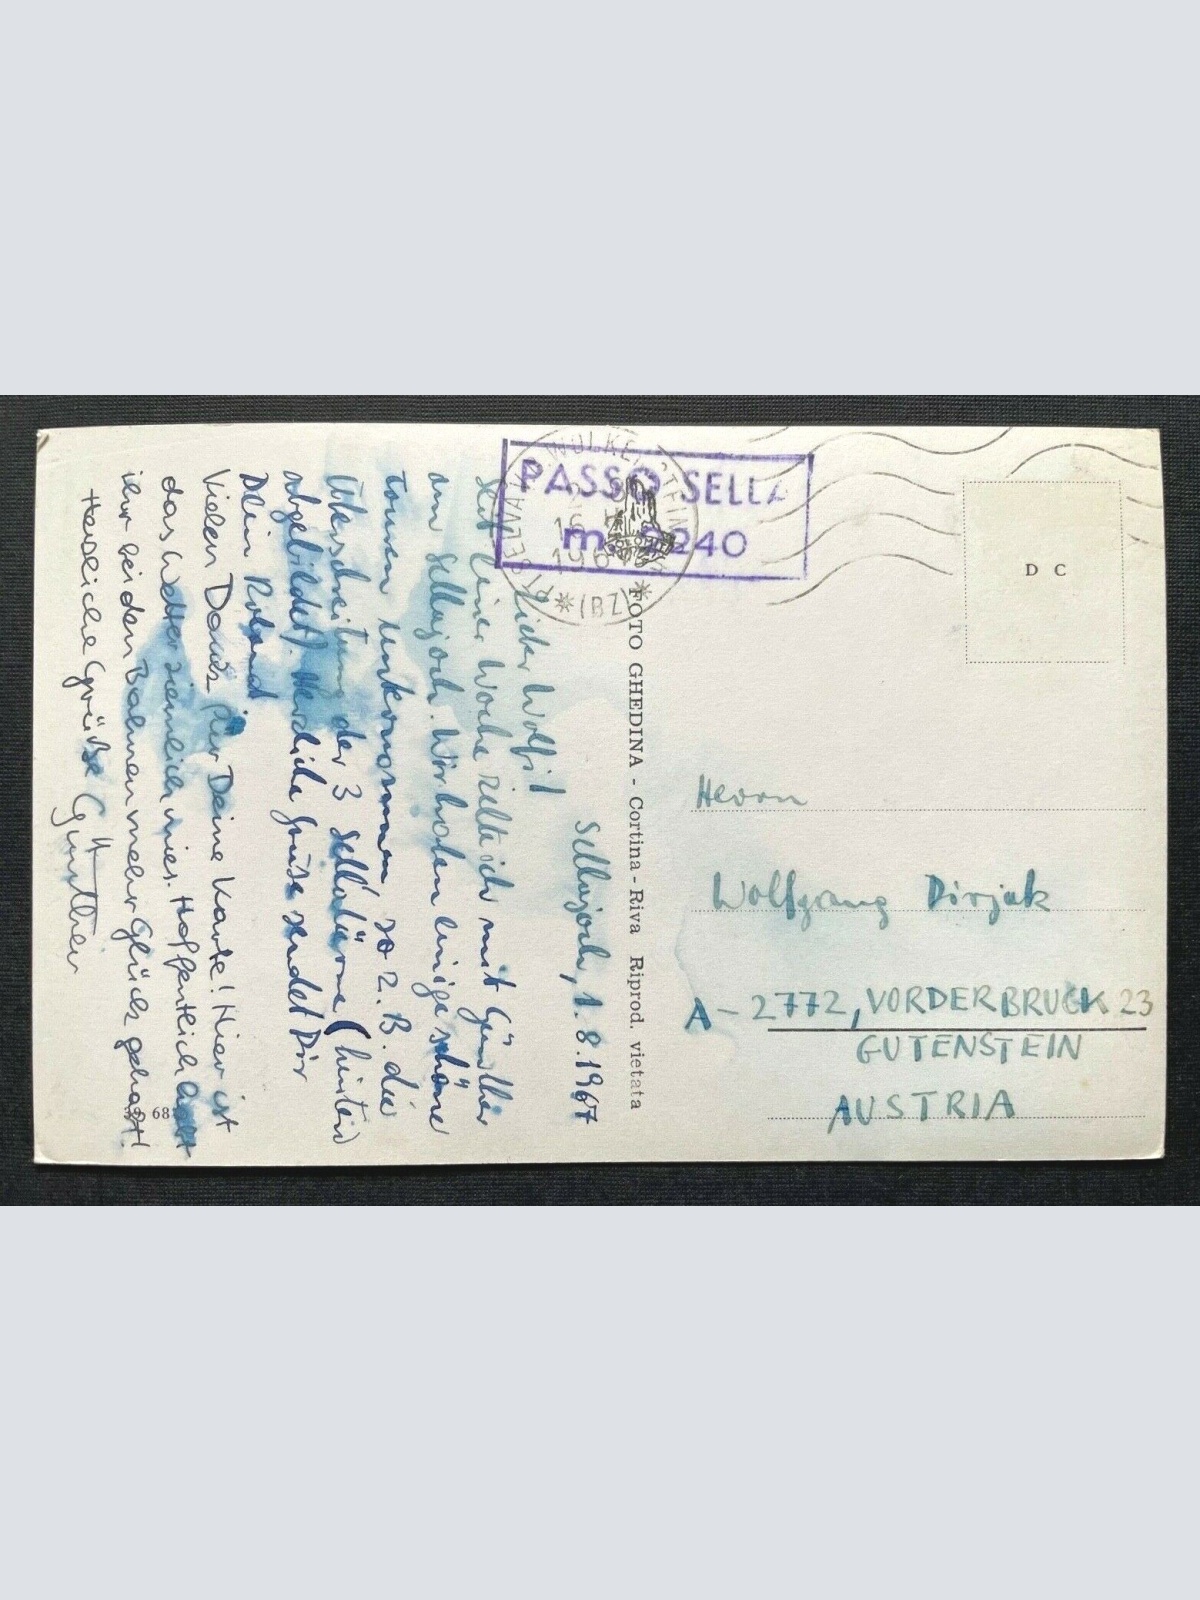 Selbjoch, 1.8.1967
Lieber Wolfi!
Seit einer Woche zelte ich mit Günther
am Sellajoch. Wir haben einige schöne
Touren unternommen, so z. B. die
Überschreitung der 3 Sellatürme (hinten
abgebildet). Herzliche Grüße sendet Dir
Dein Roland
Vielen Dank für Deine Karte! Hier ist
das Wetter ziemlich mies. Hoffentlich habt
ihr bei den mehr Glück gehabt!
Herzliche Grüße Günther
PASSO SELLA
m. 2240
WOLKENSTEIN
16
196
SELVA
*(BZ)*
FOTO GHEDINA - Cortina - Riva Riprod. vietata
D C
Herrn
Wolfgang Dirjak
A-2772, VORDERBRUCK 23
GUTENSTEIN
AUSTRIA
68